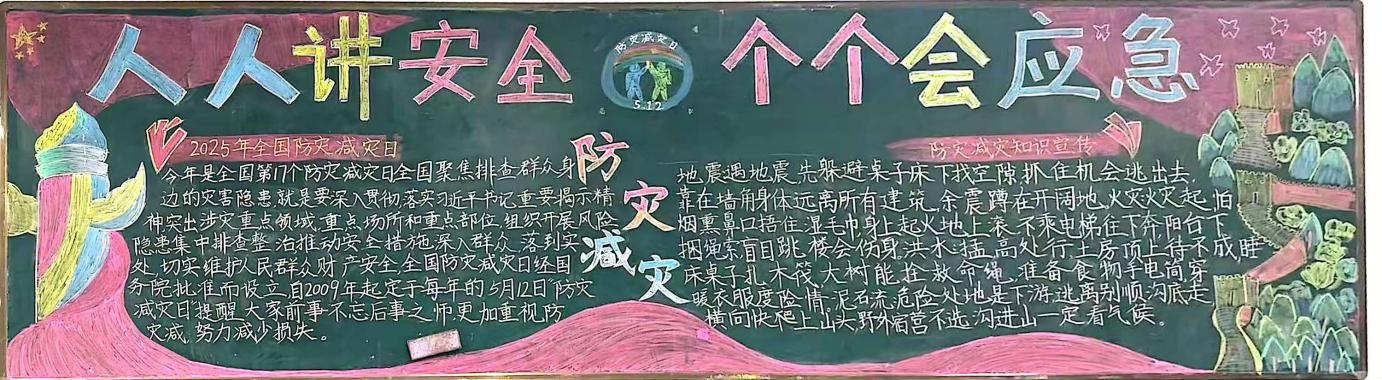 人人讲安全 个个会应急
防灾减灾日
5.12
2025年全国防灾减灾日
今年是全国第17个防灾减灾日全国聚焦排查群众身
边的灾害隐患就是要深入贯彻落实习近平书记重要揭示精
神突出涉灾重点领域、重点场所和重点部位,组织开展风险
隐患集中排查整治推动安全措施深入群众、落到实
处,切实维护人民群众财产安全全国防灾减灾日经国
务院批准而设立,自2009年起定于每年的5月12日"防灾
减灾日"提醒大家前事不忘后事之师更加重视防
灾减,努力减少损失。
防
灾
减
灾
防灾减灾知识宣传
地震遇地震先躲避桌子床下找空隙抓住机会逃出去,
靠在墙角身体远离所有建筑,余震蹲在开阔地,火灾火灾起,怕
烟熏鼻口捂住湿毛巾身上起火地上滚,不乘电梯往下奔阳台下
捆绳索盲目跳楼会伤身洪水猛,高处行土房顶上待不成睡
床桌子扎木筏,大树能拴救命绳,准备食物手电筒穿
暖衣服度险情,泥石流,危险处地是下游逃离别顺沟底走
横向快爬上山头野外宿营不选沟进山一定看气候。